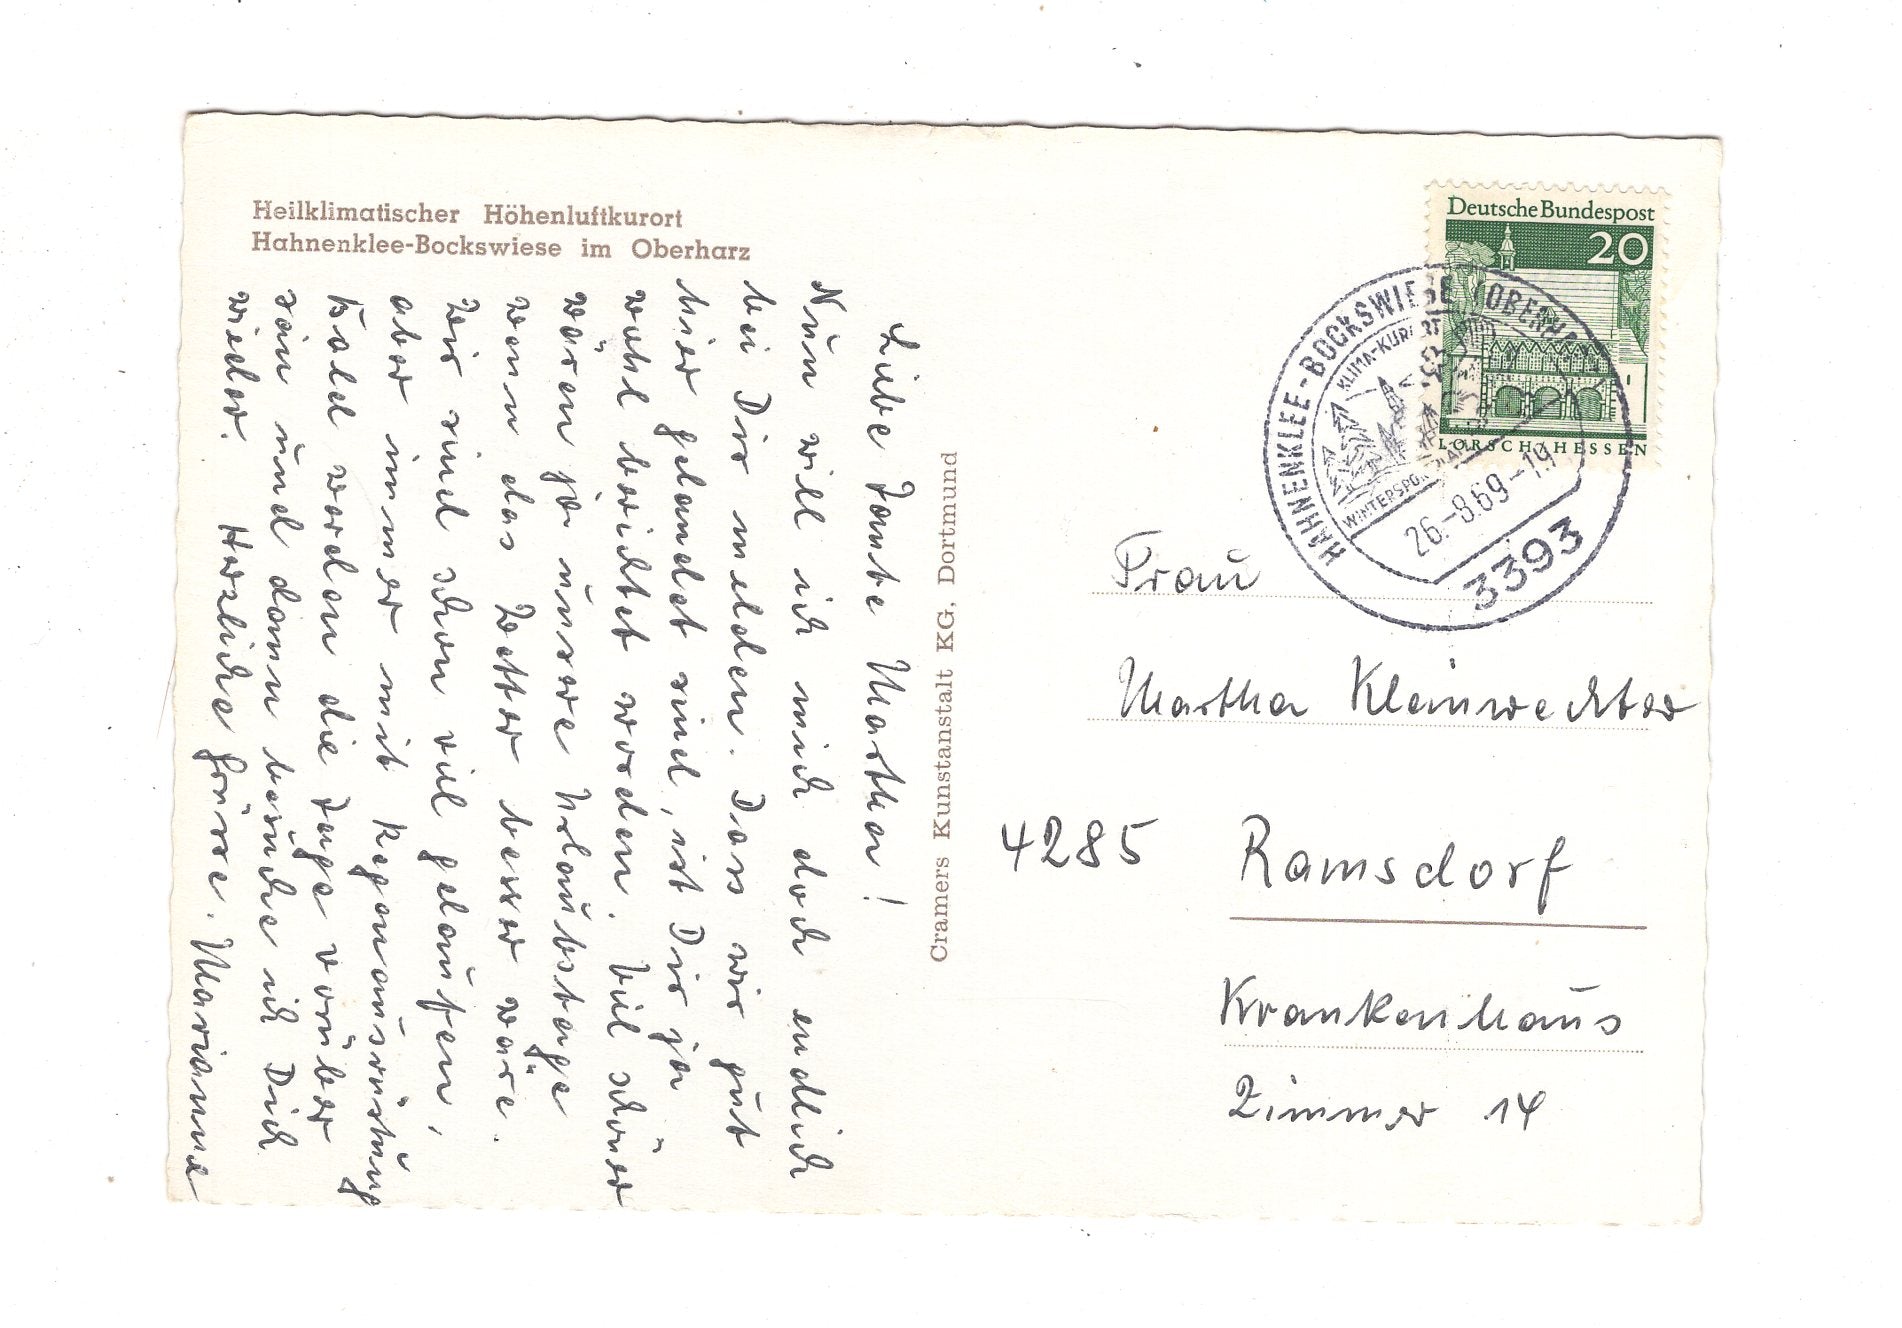 Heilklimatischer Höhenluftkurort
Hahnenklee-Bockswiese im Oberharz
Liebe Tante Martha!
Nun will ich mich doch endlich
bei Dir melden. Dass wir gut
hier gelandet sind, ist Dir ja
wohl berichtet worden. Viel schöner
wären ja unsere Urlaubstage
wenn das Wetter besser wäre.
Wir sind schon viel gelaufen,
aber immer mit Regenausrüstung
Bald werden die Tage vorüber
sein und dann besuche ich Dich
wieder. Herzliche Grüsse. Marianne
Cramers Kunstanstalt KG, Dortmund
Deutsche Bundespost
20
LORSCH/HESSEN
HAHNENKLEE-BOCKSWIESE
KLIMA-KURORT
26.-8.69-19
3393
Frau
Martha Kleinwechter
4285 Ramsdorf
Krankenhaus
Zimmer 14